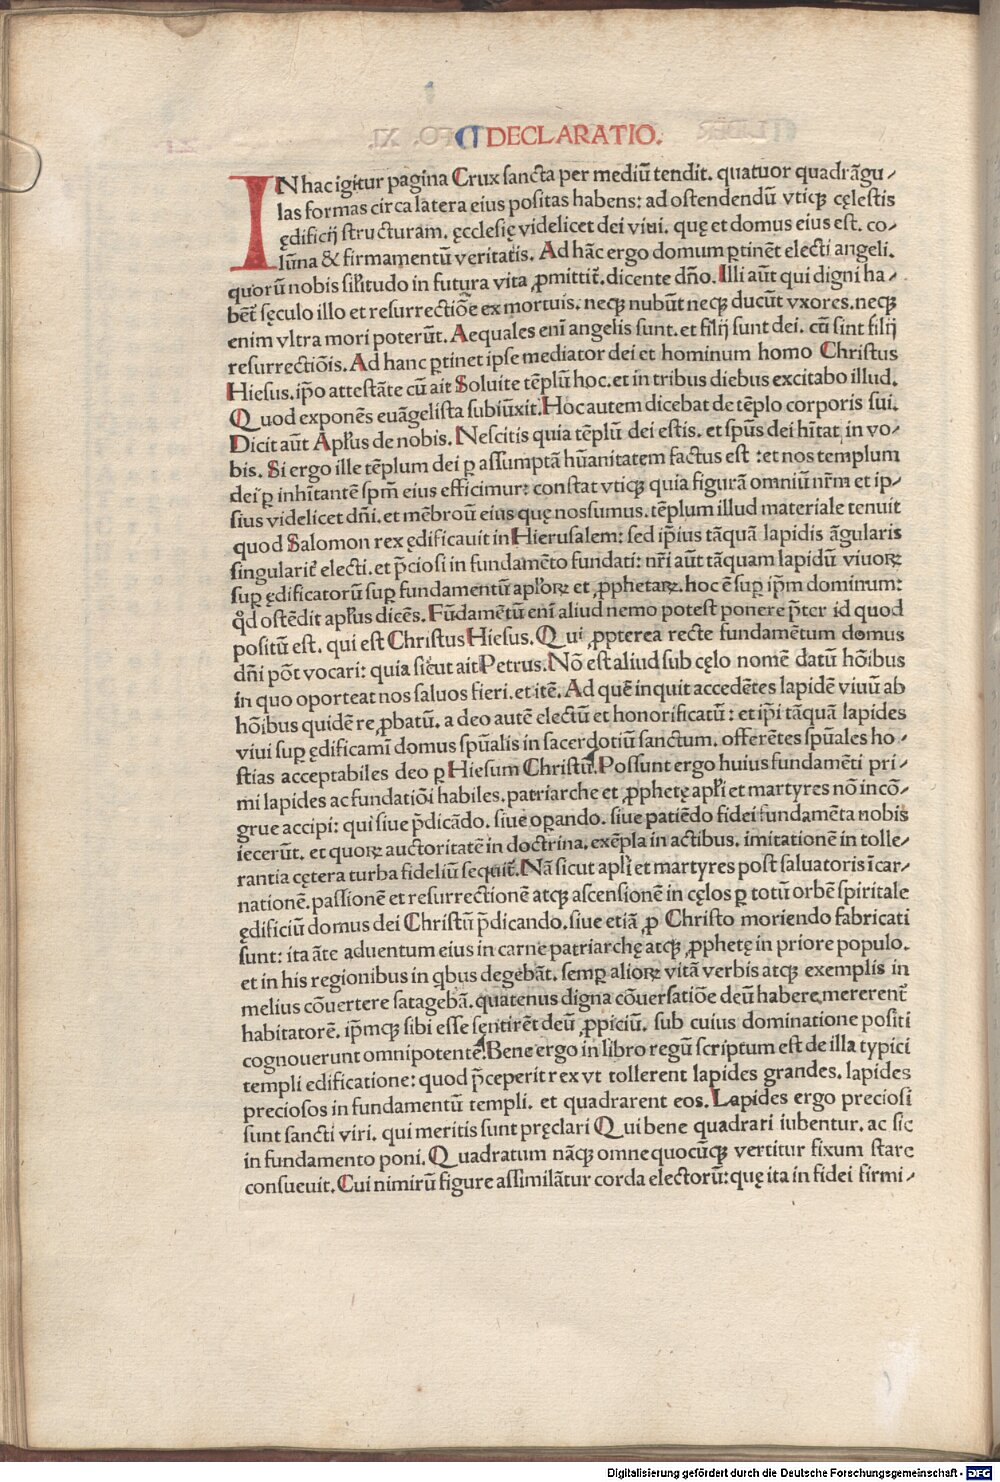 ¶ DECLARATIO.
IN hac igitur pagina Crux sancta per mediū tendit. quatuor quadrāgu⸗
las formas circa latera eius positas habens: ad ostendendū vtiqꝫ cęlestis
ędificij structuram. ęcclesię videlicet dei viui. quę et domus eius est. co⸗
lūna & firmamentū veritatis. Ad hāc ergo domum ꝑtinēt electi angeli.
quorū nobis sil̄itudo in futura vita ꝓmittit᷑. dicente dn̄o. Illi aūt qui digni ha⸗
bēt᷑ sęculo illo et resurrectiōe ex mortuis. neqꝫ nubūt neqꝫ ducūt vxores. neqꝫ
enim vltra mori poterūt. Aequales enī angelis sunt. et filij sunt dei. cū sint filij
resurrectiōis. Ad hanc ꝑtinet ipse mediator dei et hominum homo Christus
Hiesus. ip̄o attestāte cū ait Soluite tēplū hoc. et in tribus diebus excitabo illud.
Quod exponēs euāgelista subiūxit. Hoc autem dicebat de tēplo corporis sui.
Dicit aūt Apl̄us de nobis. Nescitis quia tēplū dei estis. et sp̄us dei hītat in vo⸗
bis. Si ergo ille tēplum dei ꝑ assumptā hūanitatem factus est : et nos templum
dei ꝑ inhītantē sp̄m eius efficimur: constat vtiqꝫ quia figurā omniū nr̄m et ip⸗
sius videlicet dn̄i. et mēbroū eius quę nos sumus. tēplum illud materiale tenuit
quod Salomon rex ędificauit in Hierusalem: sed ip̄ius tāquā lapidis āgularis
singularit᷑ electi. et p̄ciosi in fundamēto fundati: nr̄i aūt tāquam lapidū viuoꝝ
suꝑ ędificatorū suꝑ fundamentū apl̄oꝝ et ꝓphetaꝝ. hoc ē suꝑ ip̄m dominum:
qd̄ ostēdit apl̄us dicēs. Fūdamētū enī aliud nemo potest ponere p̄ter id quod
positū est. qui est Christus Hiesus. Qui ꝓpterea recte fundamētum domus
dn̄i pōt vocari: quia sicut ait Petrus. Nō est aliud sub cęlo nomē datū hōibus
in quo oporteat nos saluos fieri. et itē. Ad quē inquit accedētes lapidē viuū ab
hōibus quidē reꝓbatū. a deo autē electū et honorificatū : et ip̄i tāquā lapides
viui suꝑ ędificamī domus spūalis in sacerdotiū sanctum. offerētes spūales ho⸗
stias acceptabiles deo ꝑ Hiesum Christū. Possunt ergo huius fundamēti pri⸗
mi lapides ac fundatiōi habiles. patriarche et ꝓphetę apl̄i et martyres nō incō⸗
grue accipi: qui siue p̄dicādo. siue oꝑando. siue patiēdo fidei fundamēta nobis
iecerūt. et quoꝝ auctoritatē in doctrina. exēpla in actibus. imitationē in tolle⸗
rantia cętera turba fideliū sequit᷑. Nā sicut apl̄i et martyres post saluatoris īcar⸗
nationē. passionē et resurrectionē atqꝫ ascensionē in cęlos ꝑ totū orbē spiritale
ędificiū domus dei Christū p̄dicando. siue etiā ꝓ Christo moriendo fabricati
sunt: ita āte aduentum eius in carne patriarchę atqꝫ ꝓphetę in priore populo.
et in his regionibus in qbus degebāt. semꝑ alioꝝ vitā verbis atqꝫ exemplis in
melius cōuertere satagebā. quatenus digna cōuersatiōe deū habere mererent᷑
habitatorē. ip̄mqꝫ sibi esse sentirēt deū ꝓpiciū. sub cuius dominatione positi
cognouerunt omnipotentē. Bene ergo in libro regū scriptum est de illa typici
templi edificatione: quod p̄ceperit rex vt tollerent lapides grandes. lapides
preciosos in fundamentū templi. et quadrarent eos. Lapides ergo preciosi
sunt sancti viri. qui meritis sunt pręclari Qui bene quadrari iubentur. ac sic
in fundamento poni. Quadratum nāqꝫ omne quocūqꝫ vertitur fixum stare
consueuit. Cui nimirū figure assimilātur corda electorū: quę ita in fidei firmi⸗
Digitalisierung gefördert durch die Deutsche Forschungsgemeinschaft - DFG